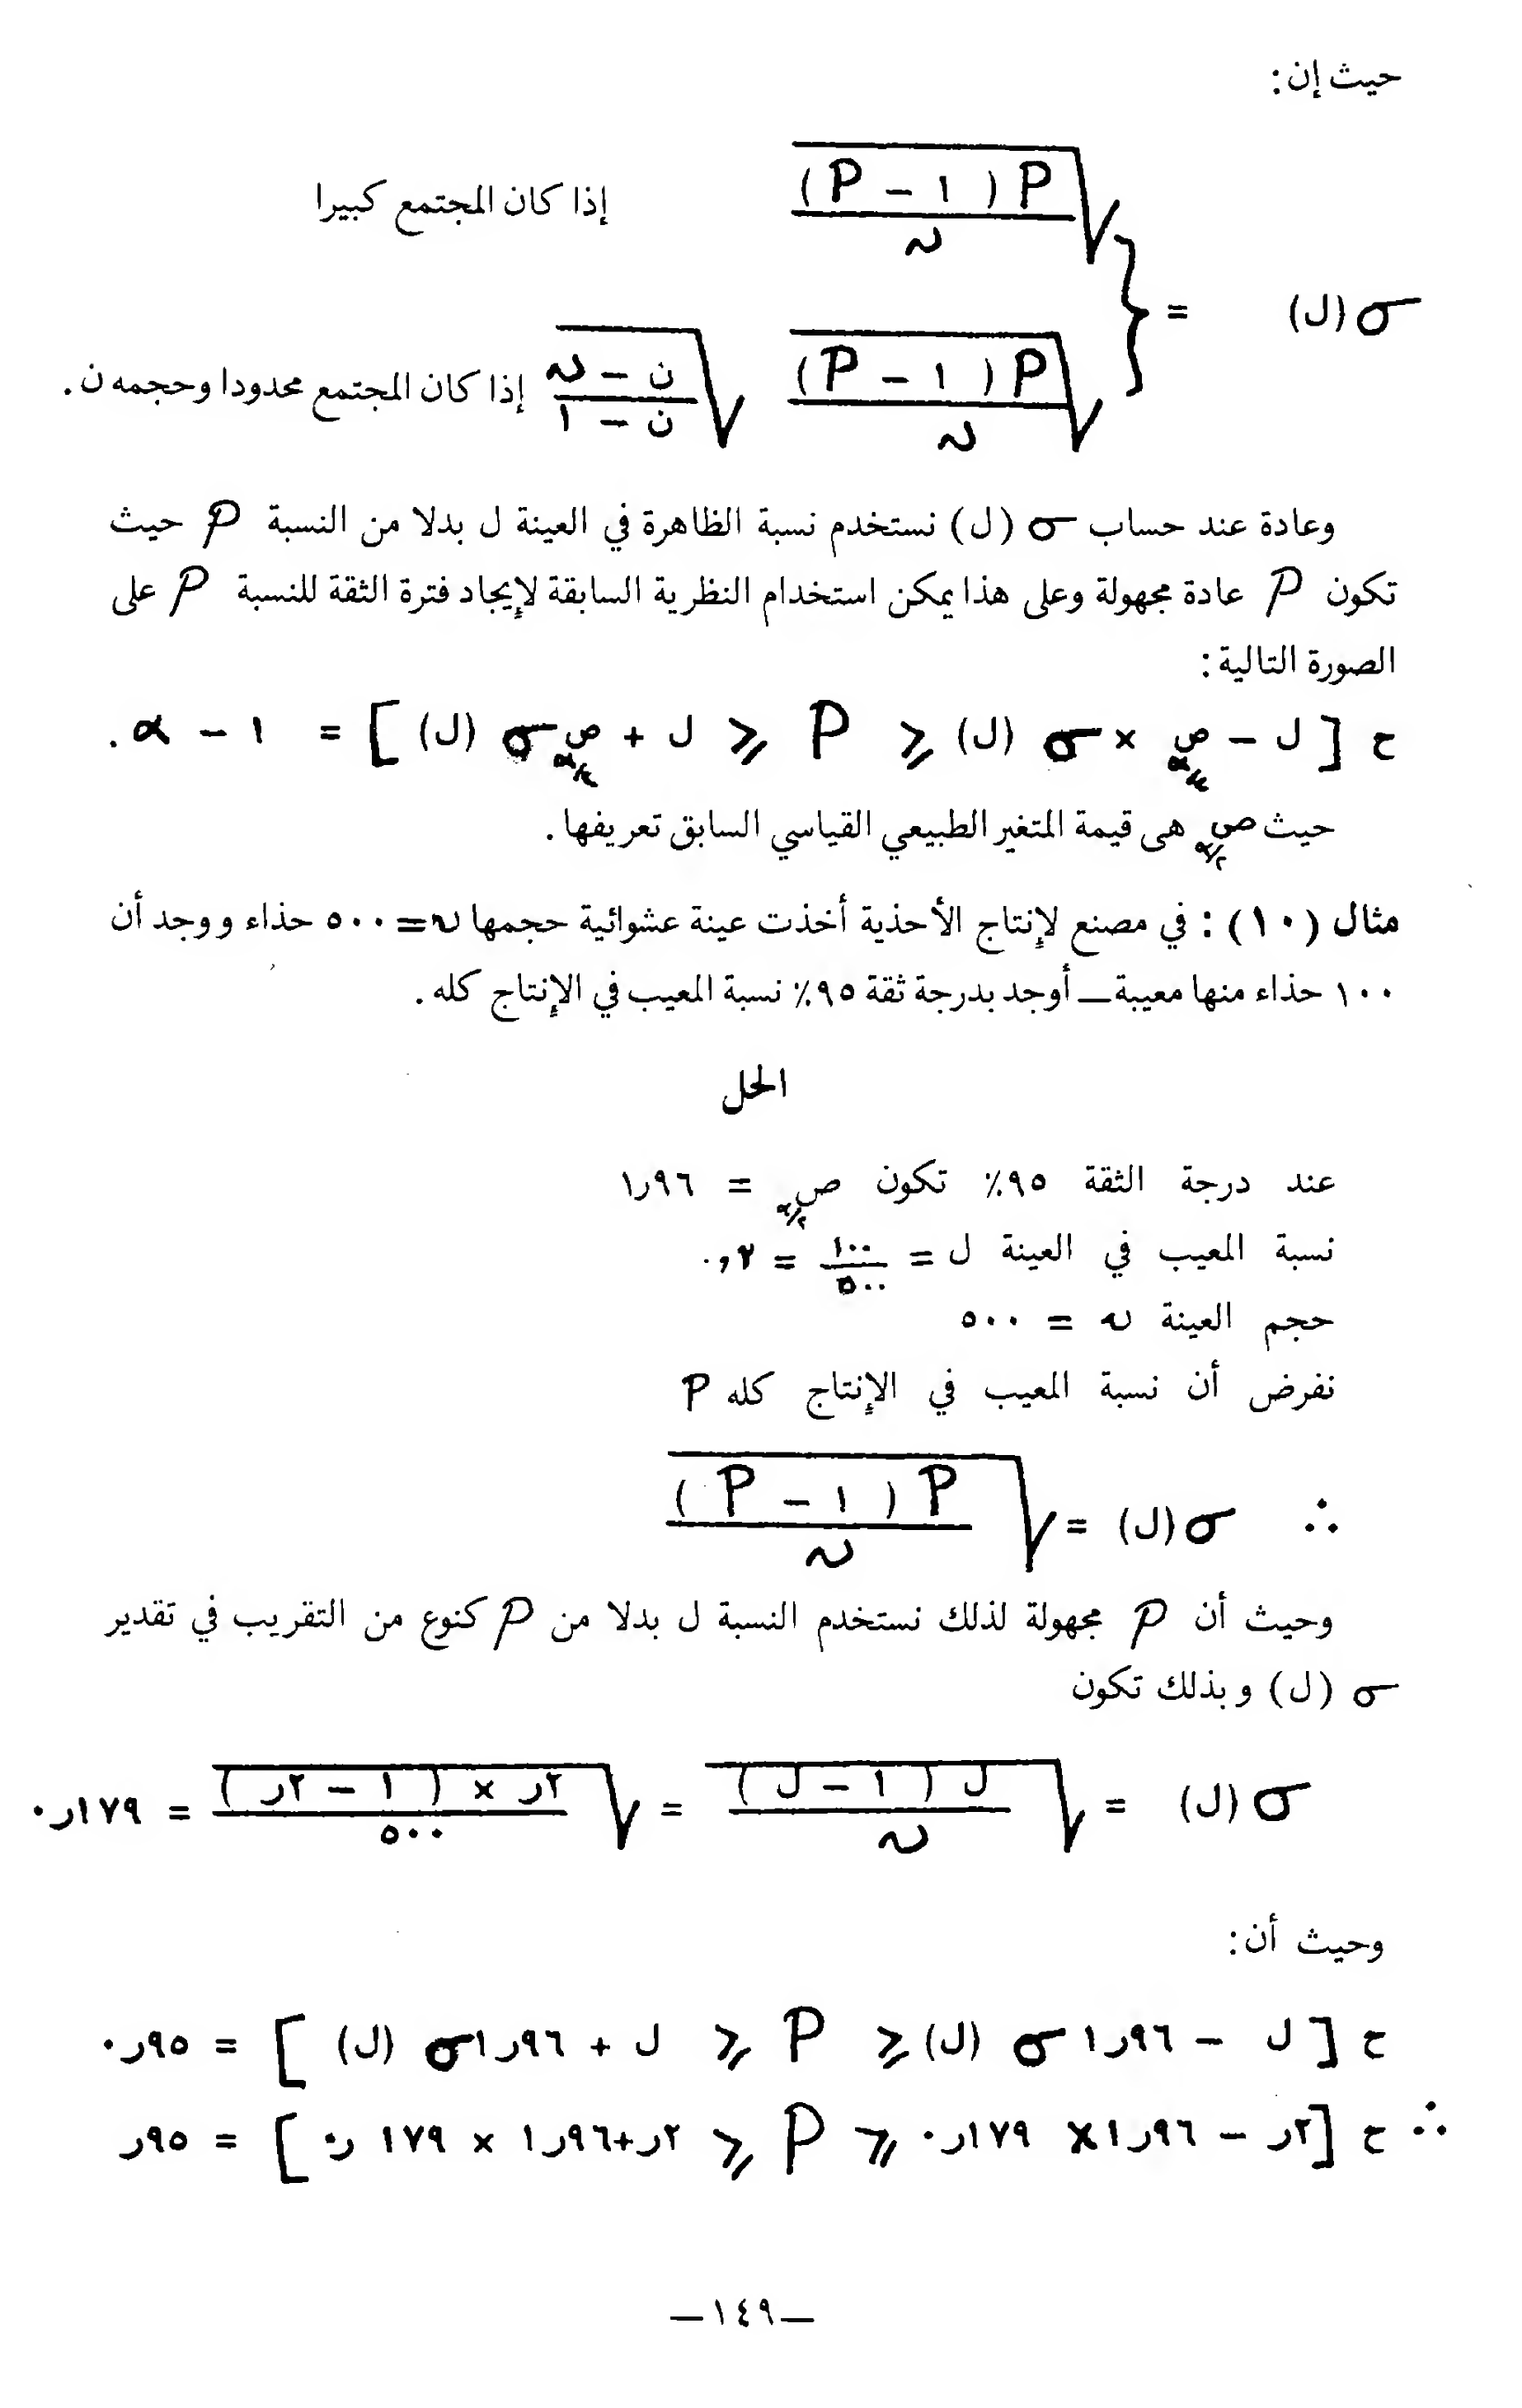 حيث إن:
σ(ل) = { √(P(١ − P) / ﮞ) إذا كان المجتمع كبيرا
√(P(١ − P) / ﮞ) √((ن − ﮞ) / (ن − ١)) إذا كان المجتمع محدودا وحجمه ن.
وعادة عند حساب σ (ل) نستخدم نسبة الظاهرة في العينة ل بدلا من النسبة P حيث
تكون P عادة مجهولة وعلى هذا يمكن استخدام النظرية السابقة لإيجاد فترة الثقة للنسبة P على
الصورة التالية:
ح [ل − ص α/٢ × σ (ل) ≤ P ≤ ل + ص α/٢ σ (ل)] = ١ − α.
حيث ص α/٢ هى قيمة المتغير الطبيعي القياسي السابق تعريفها.
مثال (١٠): في مصنع لإنتاج الأحذية أخذت عينة عشوائية حجمها ﮞ=٥٠٠ حذاء ووجد أن
١٠٠ حذاء منها معيبة ــ أوجد بدرجة ثقة ٩٥٪ نسبة المعيب في الإنتاج كله.
الحل
عند درجة الثقة ٩٥٪ تكون ص α/٢ = ١٫٩٦
نسبة المعيب في العينة ل = ١٠٠/٥٠٠ = ٠٫٢
حجم العينة ﮞ = ٥٠٠
نفرض أن نسبة المعيب في الإنتاج كله P
∴ σ(ل) = √(P(١ − P) / ﮞ)
وحيث أن P مجهولة لذلك نستخدم النسبة ل بدلا من P كنوع من التقريب في تقدير
σ (ل) وبذلك تكون
σ(ل) = √(ل(١ − ل) / ﮞ) = √(٢ر × (١ − ٢ر) / ٥٠٠) = ١٧٩ر٠
وحيث أن:
ح [ل − ٩٦ر١ σ (ل) ≤ P ≤ ل + ٩٦ر١ σ (ل)] = ٩٥ر٠
∴ ح [٢ر − ٩٦ر١ × ١٧٩ر٠ ≤ P ≤ ٢ر+٩٦ر١ × ١٧٩ ر٠] = ٩٥ر
ــ١٤٩ــ